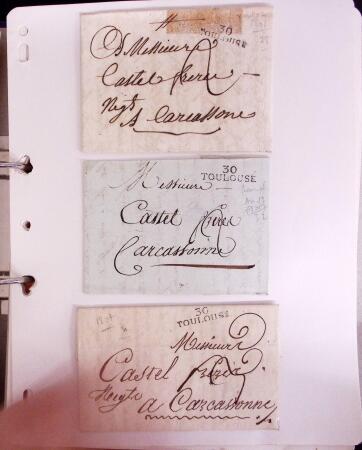 30
TOULOUSE
A Messieurs
Castel frères
Negts
A Carcassone
30
TOULOUSE
Messieurs
Castel frères
Carcassonne
30
TOULOUSE
Messieurs
Castel frères
Negts
a Carcassonne